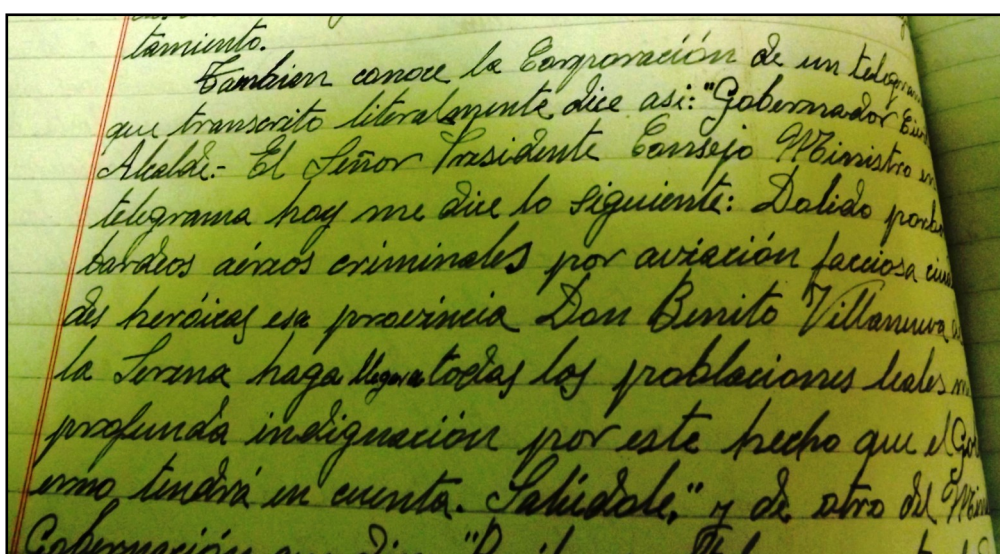 tamiento.
Tambien conoce la Corporación de un telegrama
que transcrito literalmente dice asi: "Gobernador Civil
Alcalde.- El Señor Presidente Consejo Ministro en
telegrama hoy me dice lo siguiente: Dolido
bardeos aéreos criminales por aviación facciosa ciu
des heróicas esa provincia Don Benito Villanueva
la Serena haga llegar a todas las poblaciones leales mi
profunda indignación por este hecho que el Go
erno tendrá en cuenta. Salúdole," y de otro del Minis
Gobernación que dice